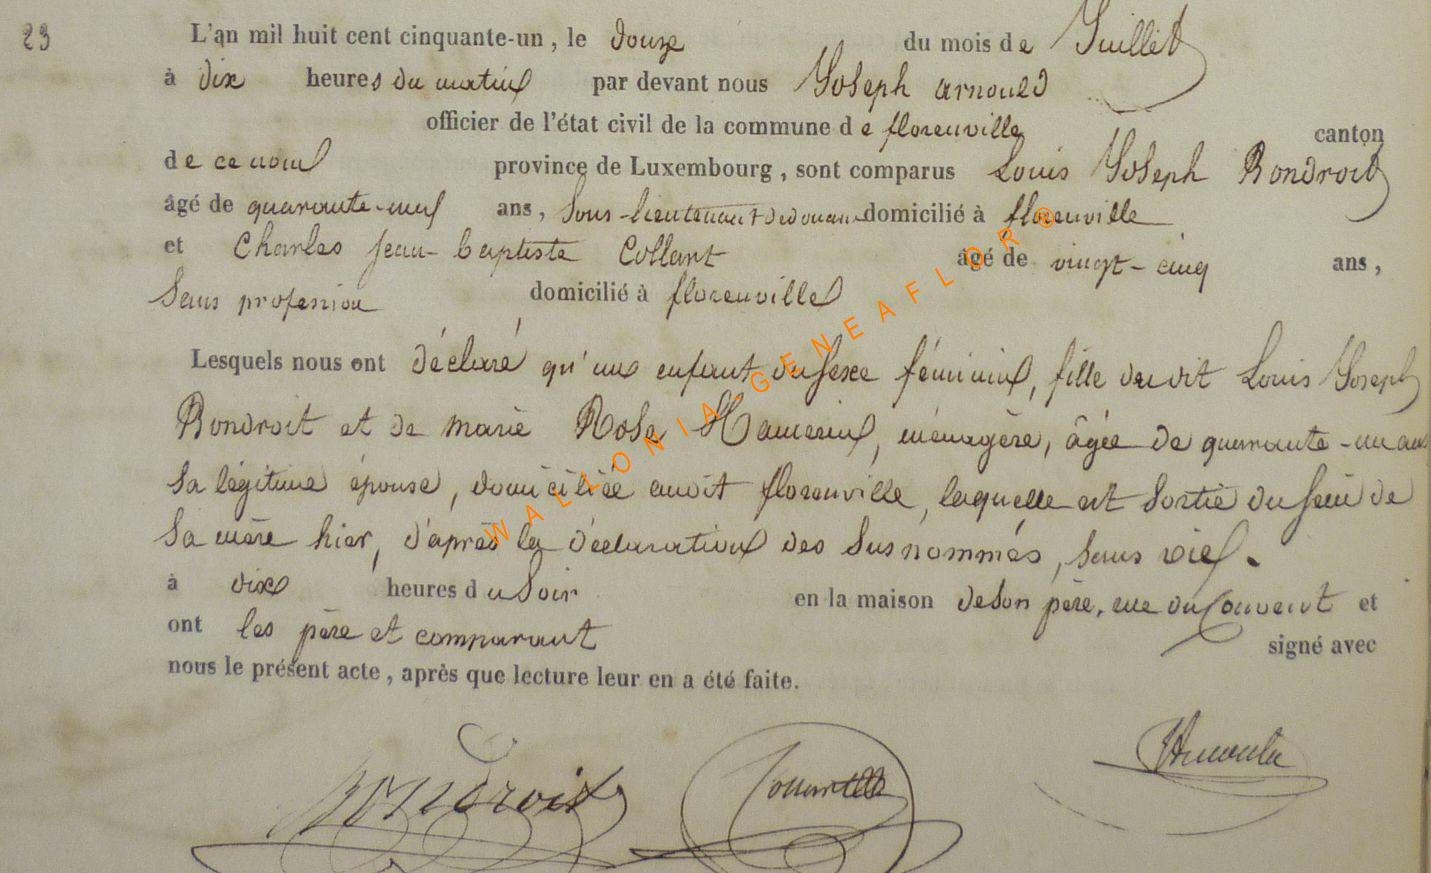 23
L'an mil huit cent cinquante-un, le douze du mois de Juillet
à dix heures du matin par devant nous Joseph Arnould
officier de l'état civil de la commune de florenville canton
de ce nom province de Luxembourg, sont comparus Louis Joseph Rondroit
âgé de quarante-neuf ans, Sous-lieutenant de douane domicilié à florenville
et Charles Jean-baptiste Collart âgé de vingt-cinq ans,
Sans profession domicilié à florenville
Lesquels nous ont déclaré qu'un enfant du sexe féminin, fille du dit Louis Joseph
Rondroit et de marie Rose, ménagère, âgée de quarante-un ans
Sa légitime épouse, domiciliée audit florenville, laquelle est sortie du sein de
Sa mère hier, d'après la déclaration des susnommés, sans vie.
à dix heures du Soir en la maison de son père, rue du Couvent et
ont les père et comparant signé avec
nous le présent acte, après que lecture leur en a été faite.
Rondroit Collart Arnould
WALLONIA-GENEAFLOR®